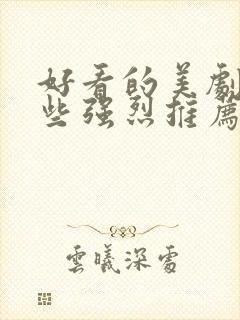 好看的美劇
些强烈推薦
雲曦深處